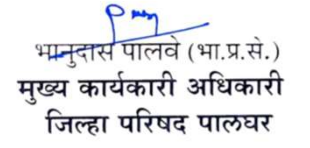 भानुदास पालवे (भा.प्र.से.)
मुख्य कार्यकारी अधिकारी
जिल्हा परिषद पालघर